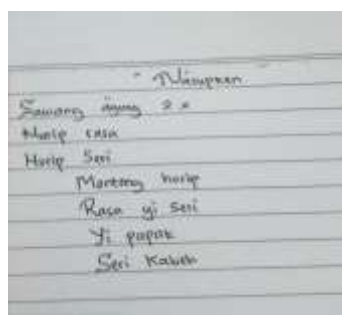 Sawang agung 2 x
Hurip rasa
Hurip Seri
Manteng hurip
Rasa yi seri
Yi papak
Seri Kabeh